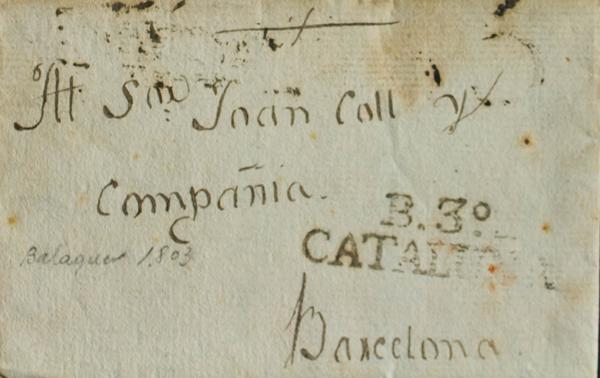 Al Sor Joan Coll y
Compañia.
B. 3º
CATALUÑA
Balaguer 1803
Barcelona